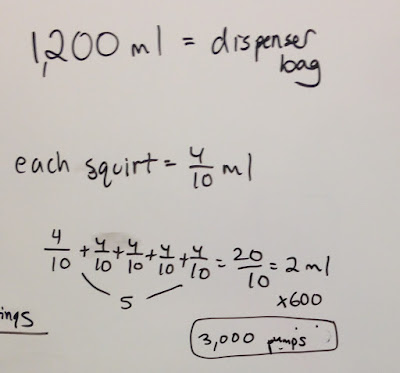 1,200 ml = dispenser
bag
each squirt = 4/10 ml
4/10 + 4/10 + 4/10 + 4/10 + 4/10 = 20/10 = 2 ml
5
x600
ings
3,000 pumps